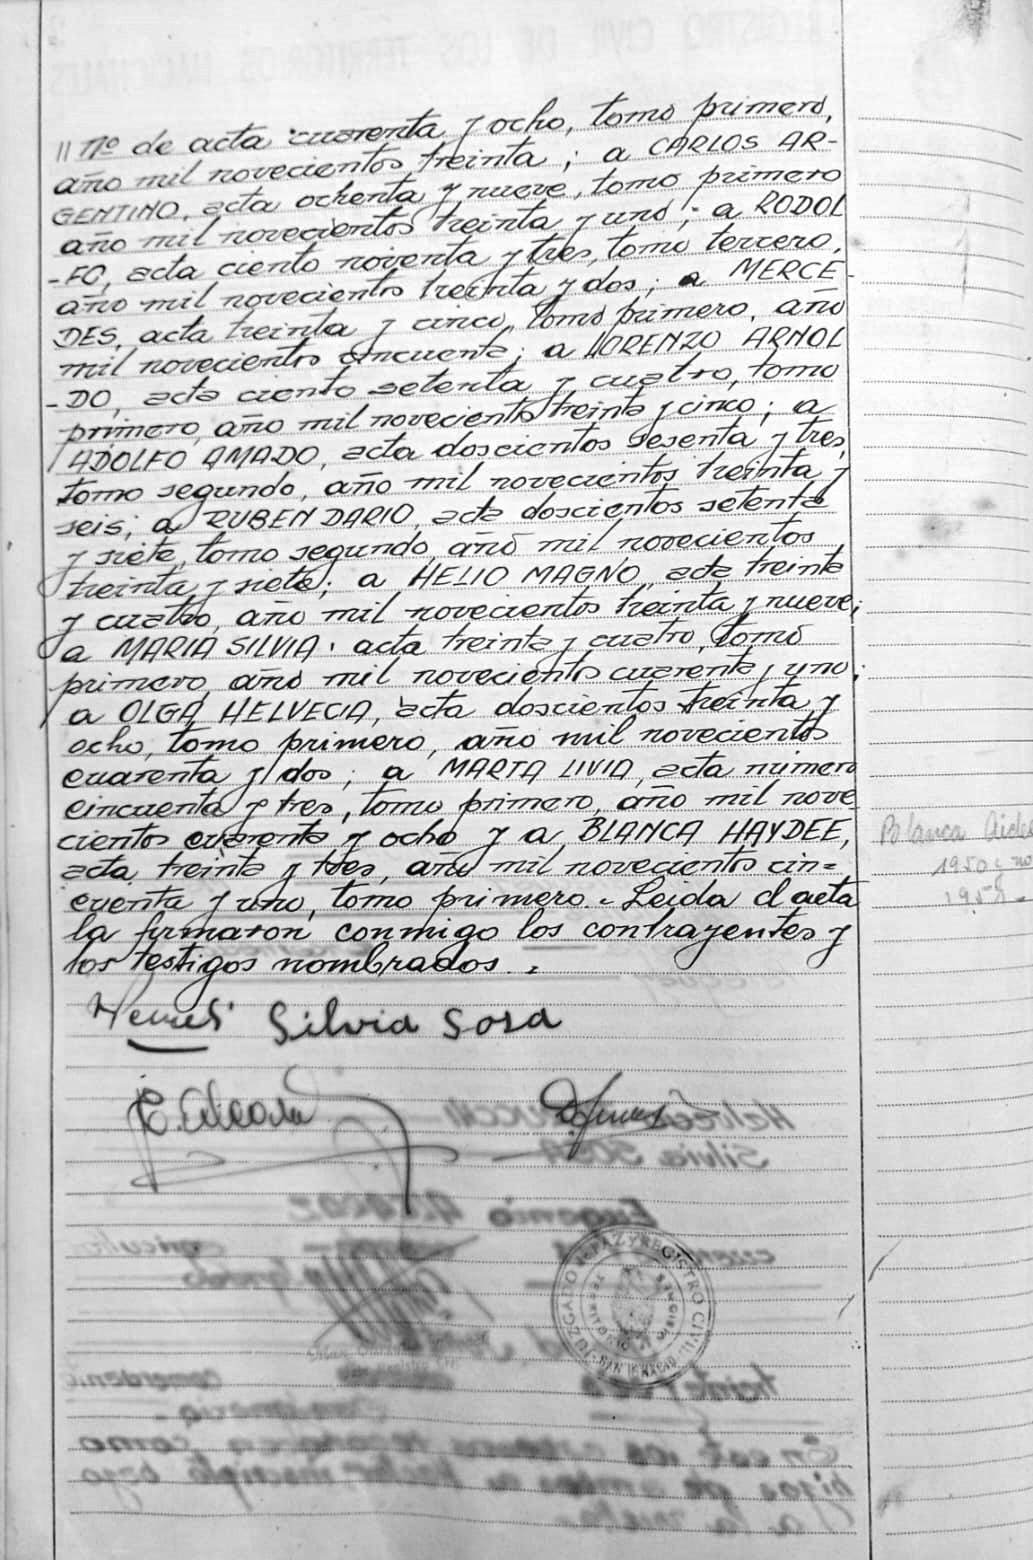 // Nº de acta cuarenta y ocho, tomo primero,
año mil novecientos treinta; a CARLOS AR-
GENTINO, acta ochenta y nueve, tomo primero
año mil novecientos treinta y uno; a RODOL
-FO, acta ciento noventa y tres, tomo tercero,
año mil novecientos treinta y dos; a MERCE-
DES, acta treinta y cinco, tomo primero, año
mil novecientos cincuenta; a LORENZO ARNOL
-DO, acta ciento setenta y cuatro, tomo
primero, año mil novecientos treinta y cinco; a
ADOLFO AMADO, acta doscientos sesenta y tres,
tomo segundo, año mil novecientos treinta y
seis; a RUBEN DARIO, acta doscientos setenta
y siete, tomo segundo, año mil novecientos
treinta y siete; a HELIO MAGNO, acta treinta
y cuatro, año mil novecientos treinta y nueve;
a MARIA SILVIA, acta treinta y cuatro, tomo
primero, año mil novecientos cuarenta y uno;
a OLGA HELVECIA, acta doscientos treinta y
ocho, tomo primero, año mil novecientos
cuarenta y dos; a MARTA LIVIA, acta número
cincuenta y tres, tomo primero, año mil nove
cientos cuarenta y ocho y a BLANCA HAYDEE,
acta treinta y tres, año mil novecientos cin=
cuenta y uno, tomo primero.- Leida el acta
la firmaron conmigo los contrayentes y
los testigos nombrados.-
Blanca
1950
Silvia Sosa
JUZGADO DE PAZ Y REGISTRO CIVIL
SAN IGNACIO